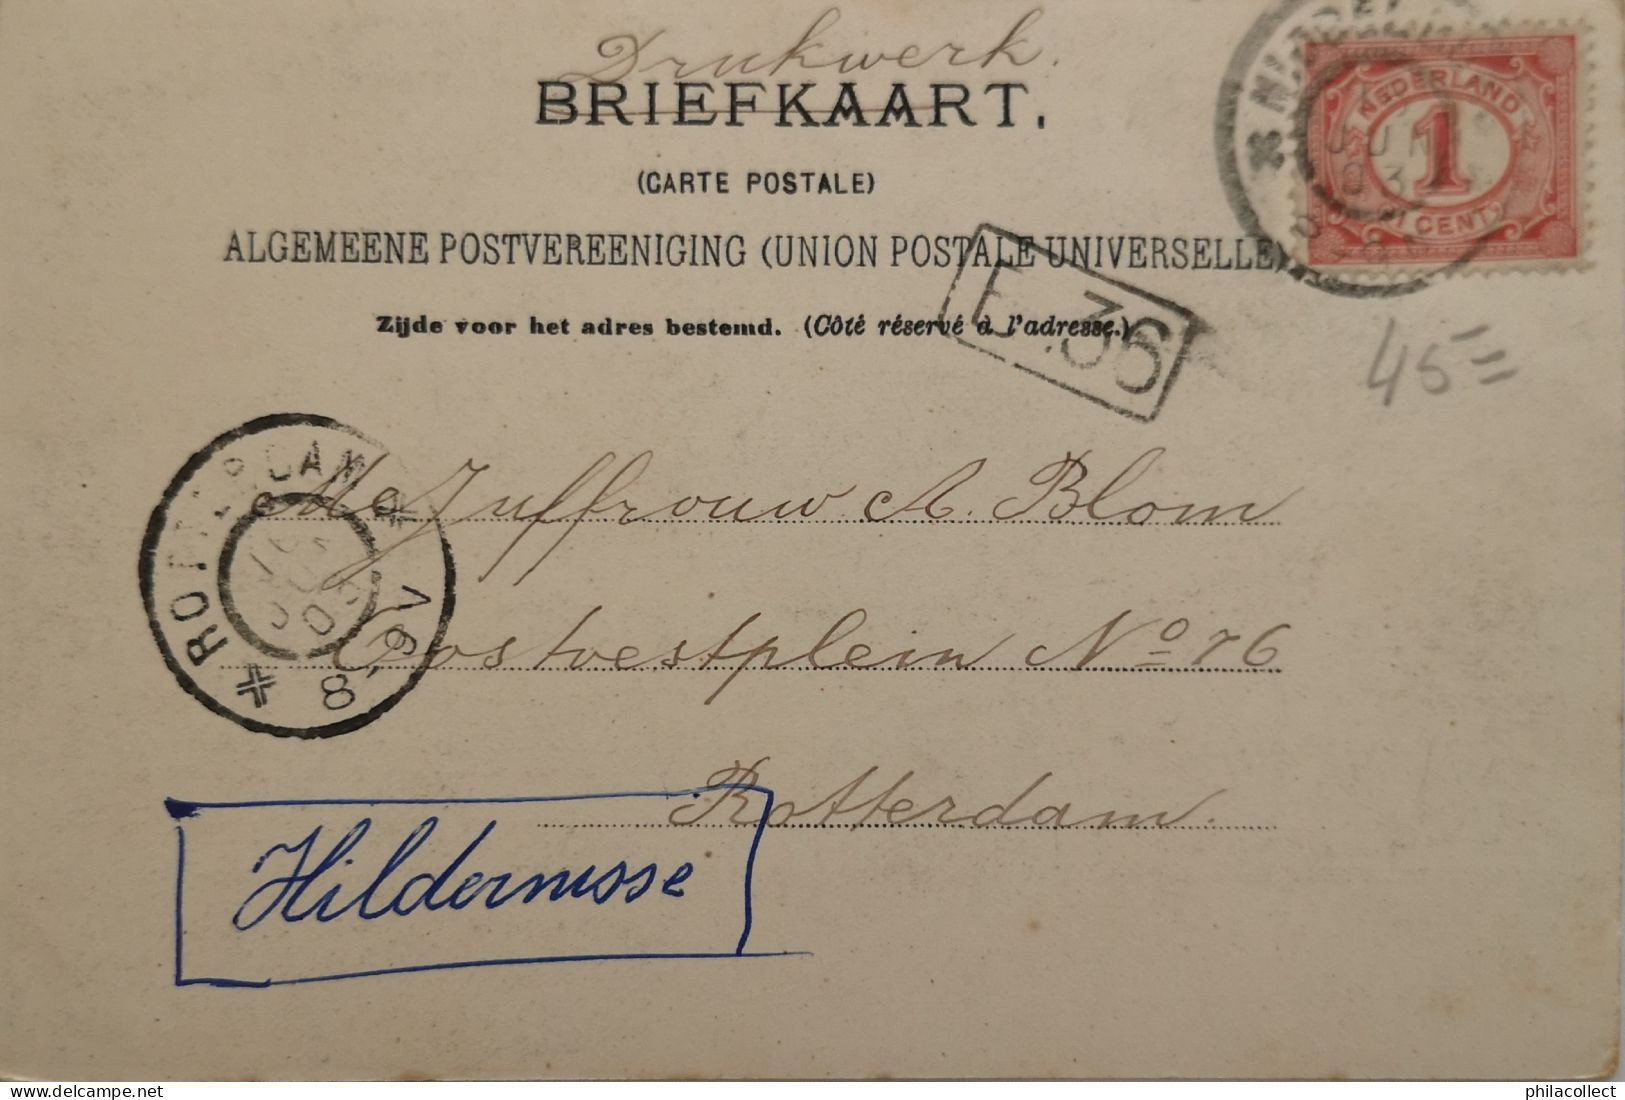 Drukwerk.
BRIEFKAART.
(CARTE POSTALE)
ALGEMEENE POSTVEREENIGING (UNION POSTALE UNIVERSELLE)
Zijde voor het adres bestemd. (Côté réservé à l'adresse.)
NEDERLAND
1
1 CENT
JUN
03
E.36
45=
ROTTERDAM
8-9V
MeJuffrouw A. Blom
Oostvestplein No 76
Rotterdam.
Hildernisse
philacollect